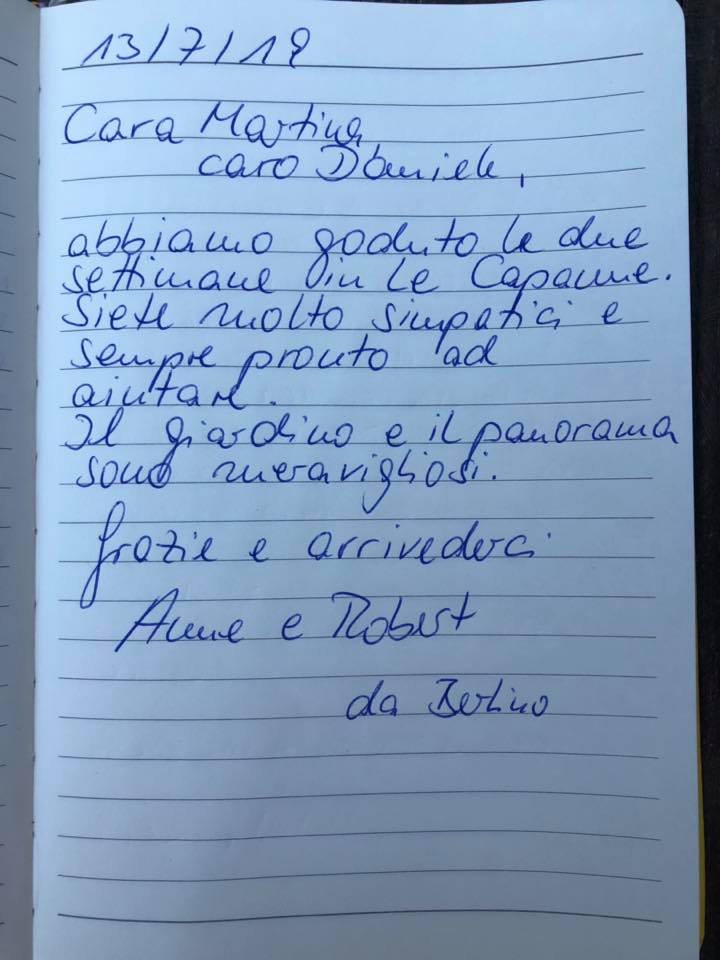 13/7/19
Cara Martina
caro Daniele,
abbiamo goduto le due
settimane in Le Capanne.
Siete molto simpatici e
sempre pronto ad
aiutare.
Il giardino e il panorama
sono meravigliosi.
Grazie e arrivederci
Anne e Robert
da Berlino